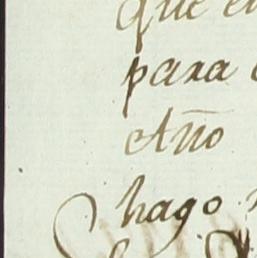 que
para
Año
hago